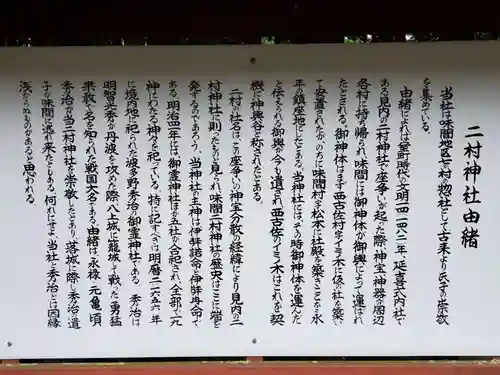 二村神社由緒
当社は味間地区十ヶ村の惣社として古来より氏子の崇敬
を集めている。
由緒によれば室町時代文明十四(一四八二)年、延喜式内社で
ある見内の二村神社で座争いが起った際、神宝・神器が周辺
各村に持ち帰られ、味間には御神体が御輿によって運ばれ
たとされる。御神体はまず西古佐村字イラ木に仮の社を築い
て安置されたが、のちに味間村字松本に社殿を築きここを永
年の鎮座地にしたとある。当神社には、その時御神体を運んだ
と伝えられる御輿が今も遺され、西古佐のイラ木はこれを契
機に神輿谷と称されたとある。
二村の社名はこの座争いの神宝分散の経緯により見内の二
村神社に則ったものと見られ、味間二村神社の歴史はここに端を
発するのであろう。当神社の主神は伊弉諾命、伊弉冉命で
ある。明治四一年には、御霊神社ほか五社が合祀され、全部で一元
神にわたる神々を祀っている。特に記すべきは明暦二(一六五六)年
に境内地に祀られた波多野秀治の御霊神社である。秀治は
明智光秀が丹波を攻めた際、八上城に籠城して戦った勇猛
果敢で名を知られた戦国大名である。由緒は、永禄、元亀の頃
秀治が当二村神社を崇敬したとあり、落城に際し秀治の遺
子が味間に逃れ来たともある。何れにせよ、当社と秀治とは因縁
浅からぬものがあると思われる。